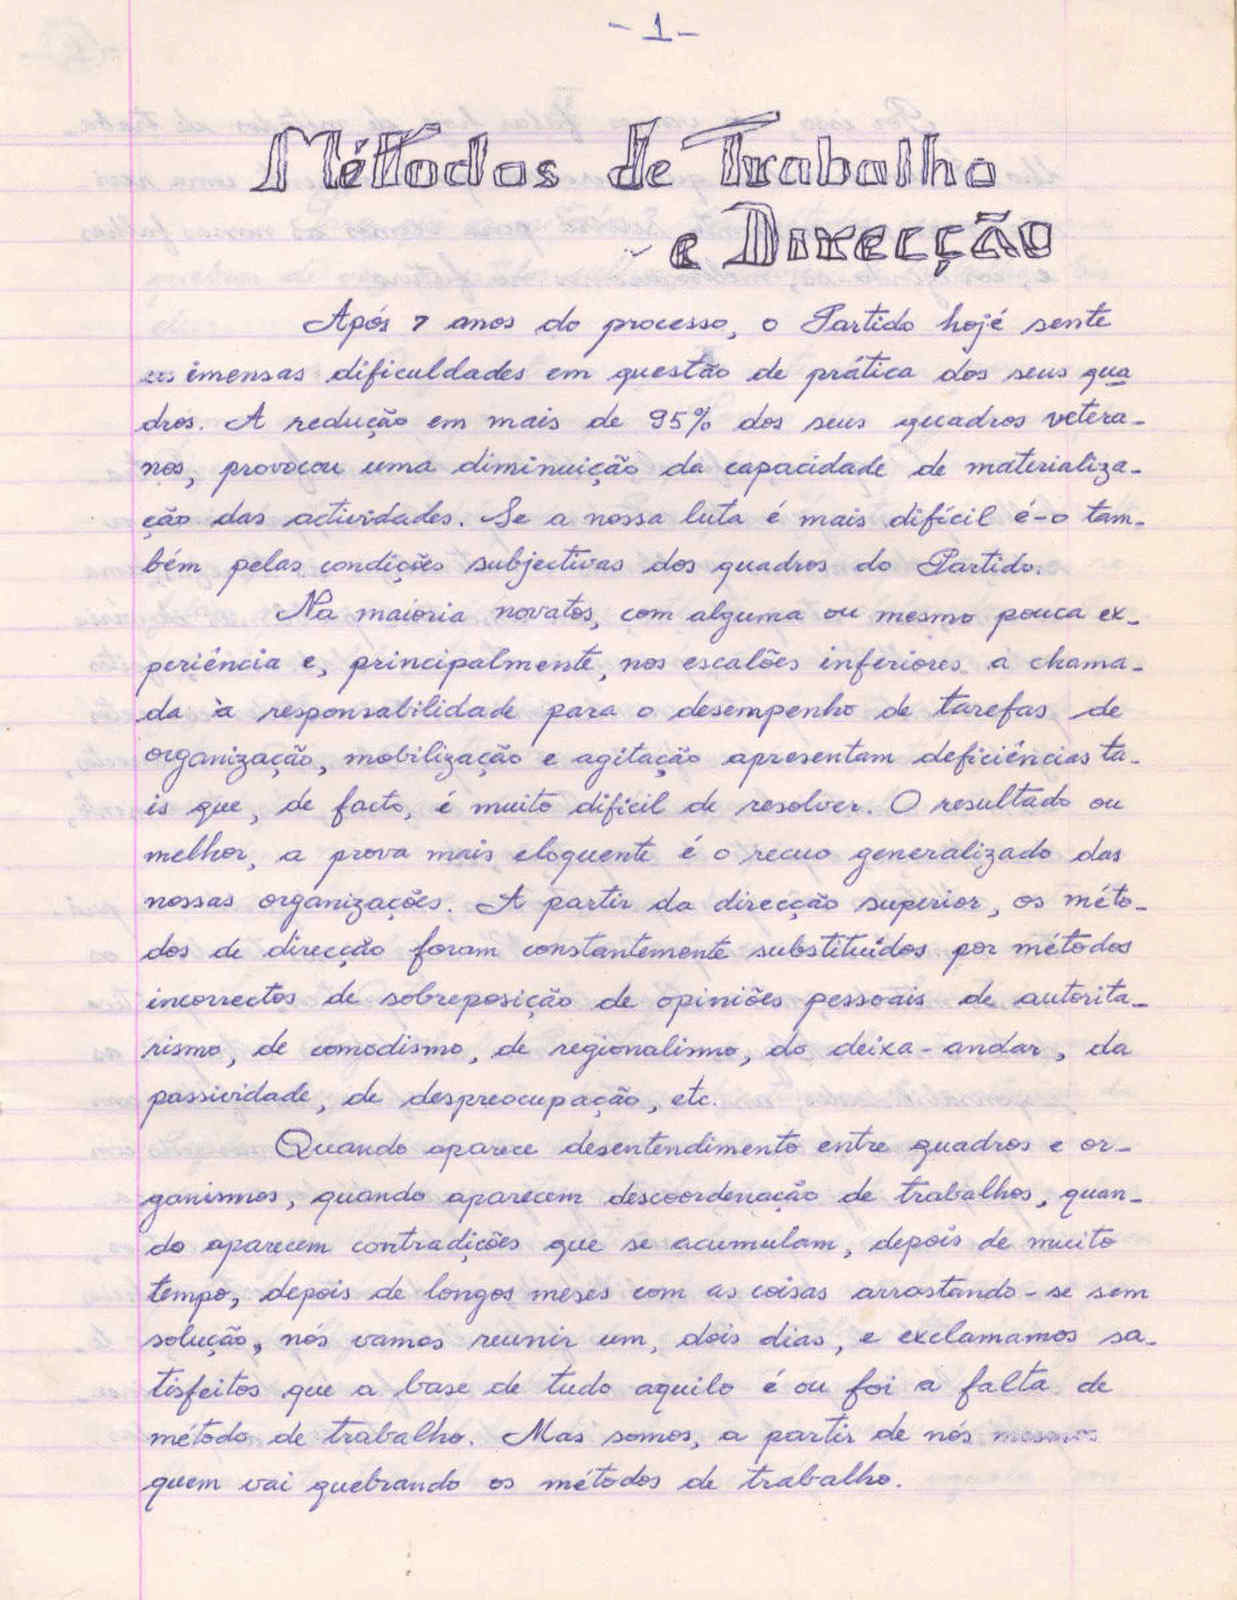 - 1 -
Métodos de Trabalho
e Direcção
Após 7 anos do processo, o Partido hoje sente
as imensas dificuldades em questão de prática dos seus qua
dros. A redução em mais de 95% dos seus quadros vetera-
nos, provocou uma diminuição da capacidade de materializa-
ção das actividades. Se a nossa luta é mais difícil é-o tam-
bém pelas condições subjectivas dos quadros do Partido.
Na maioria novatos, com alguma ou mesmo pouca ex-
periência e, principalmente, nos escalões inferiores a chama-
da à responsabilidade para o desempenho de tarefas de
organização, mobilização e agitação apresentam deficiências ta-
is que, de facto, é muito difícil de resolver. O resultado ou
melhor, a prova mais eloquente é o recuo generalizado das
nossas organizações. A partir da direcção superior, os méto-
dos de direcção foram constantemente substituídos por métodos
incorrectos de sobreposição de opiniões pessoais de autorita-
rismo, de comodismo, de regionalismo, do deixa-andar, da
passividade, de despreocupação, etc.
Quando aparece desentendimento entre quadros e or-
ganismos, quando aparecem descoordenação de trabalhos, quan-
do aparecem contradições que se acumulam, depois de muito
tempo, depois de longos meses com as coisas arrastando-se sem
solução, nós vamos reunir um, dois dias, e exclamamos sa-
tisfeitos que a base de tudo aquilo é ou foi a falta de
método de trabalho. Mas somos, a partir de nós mesmos
quem vai quebrando os métodos de trabalho.